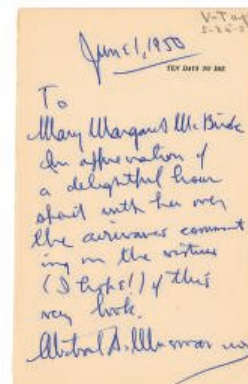 June 1, 1950
TEN DAYS TO DIE
To
Mary Margaret McBride
In appreciation of
a delightful hour
spent with her over
the airwaves comment
ing on the virtues
(I hope!) of this
very book.